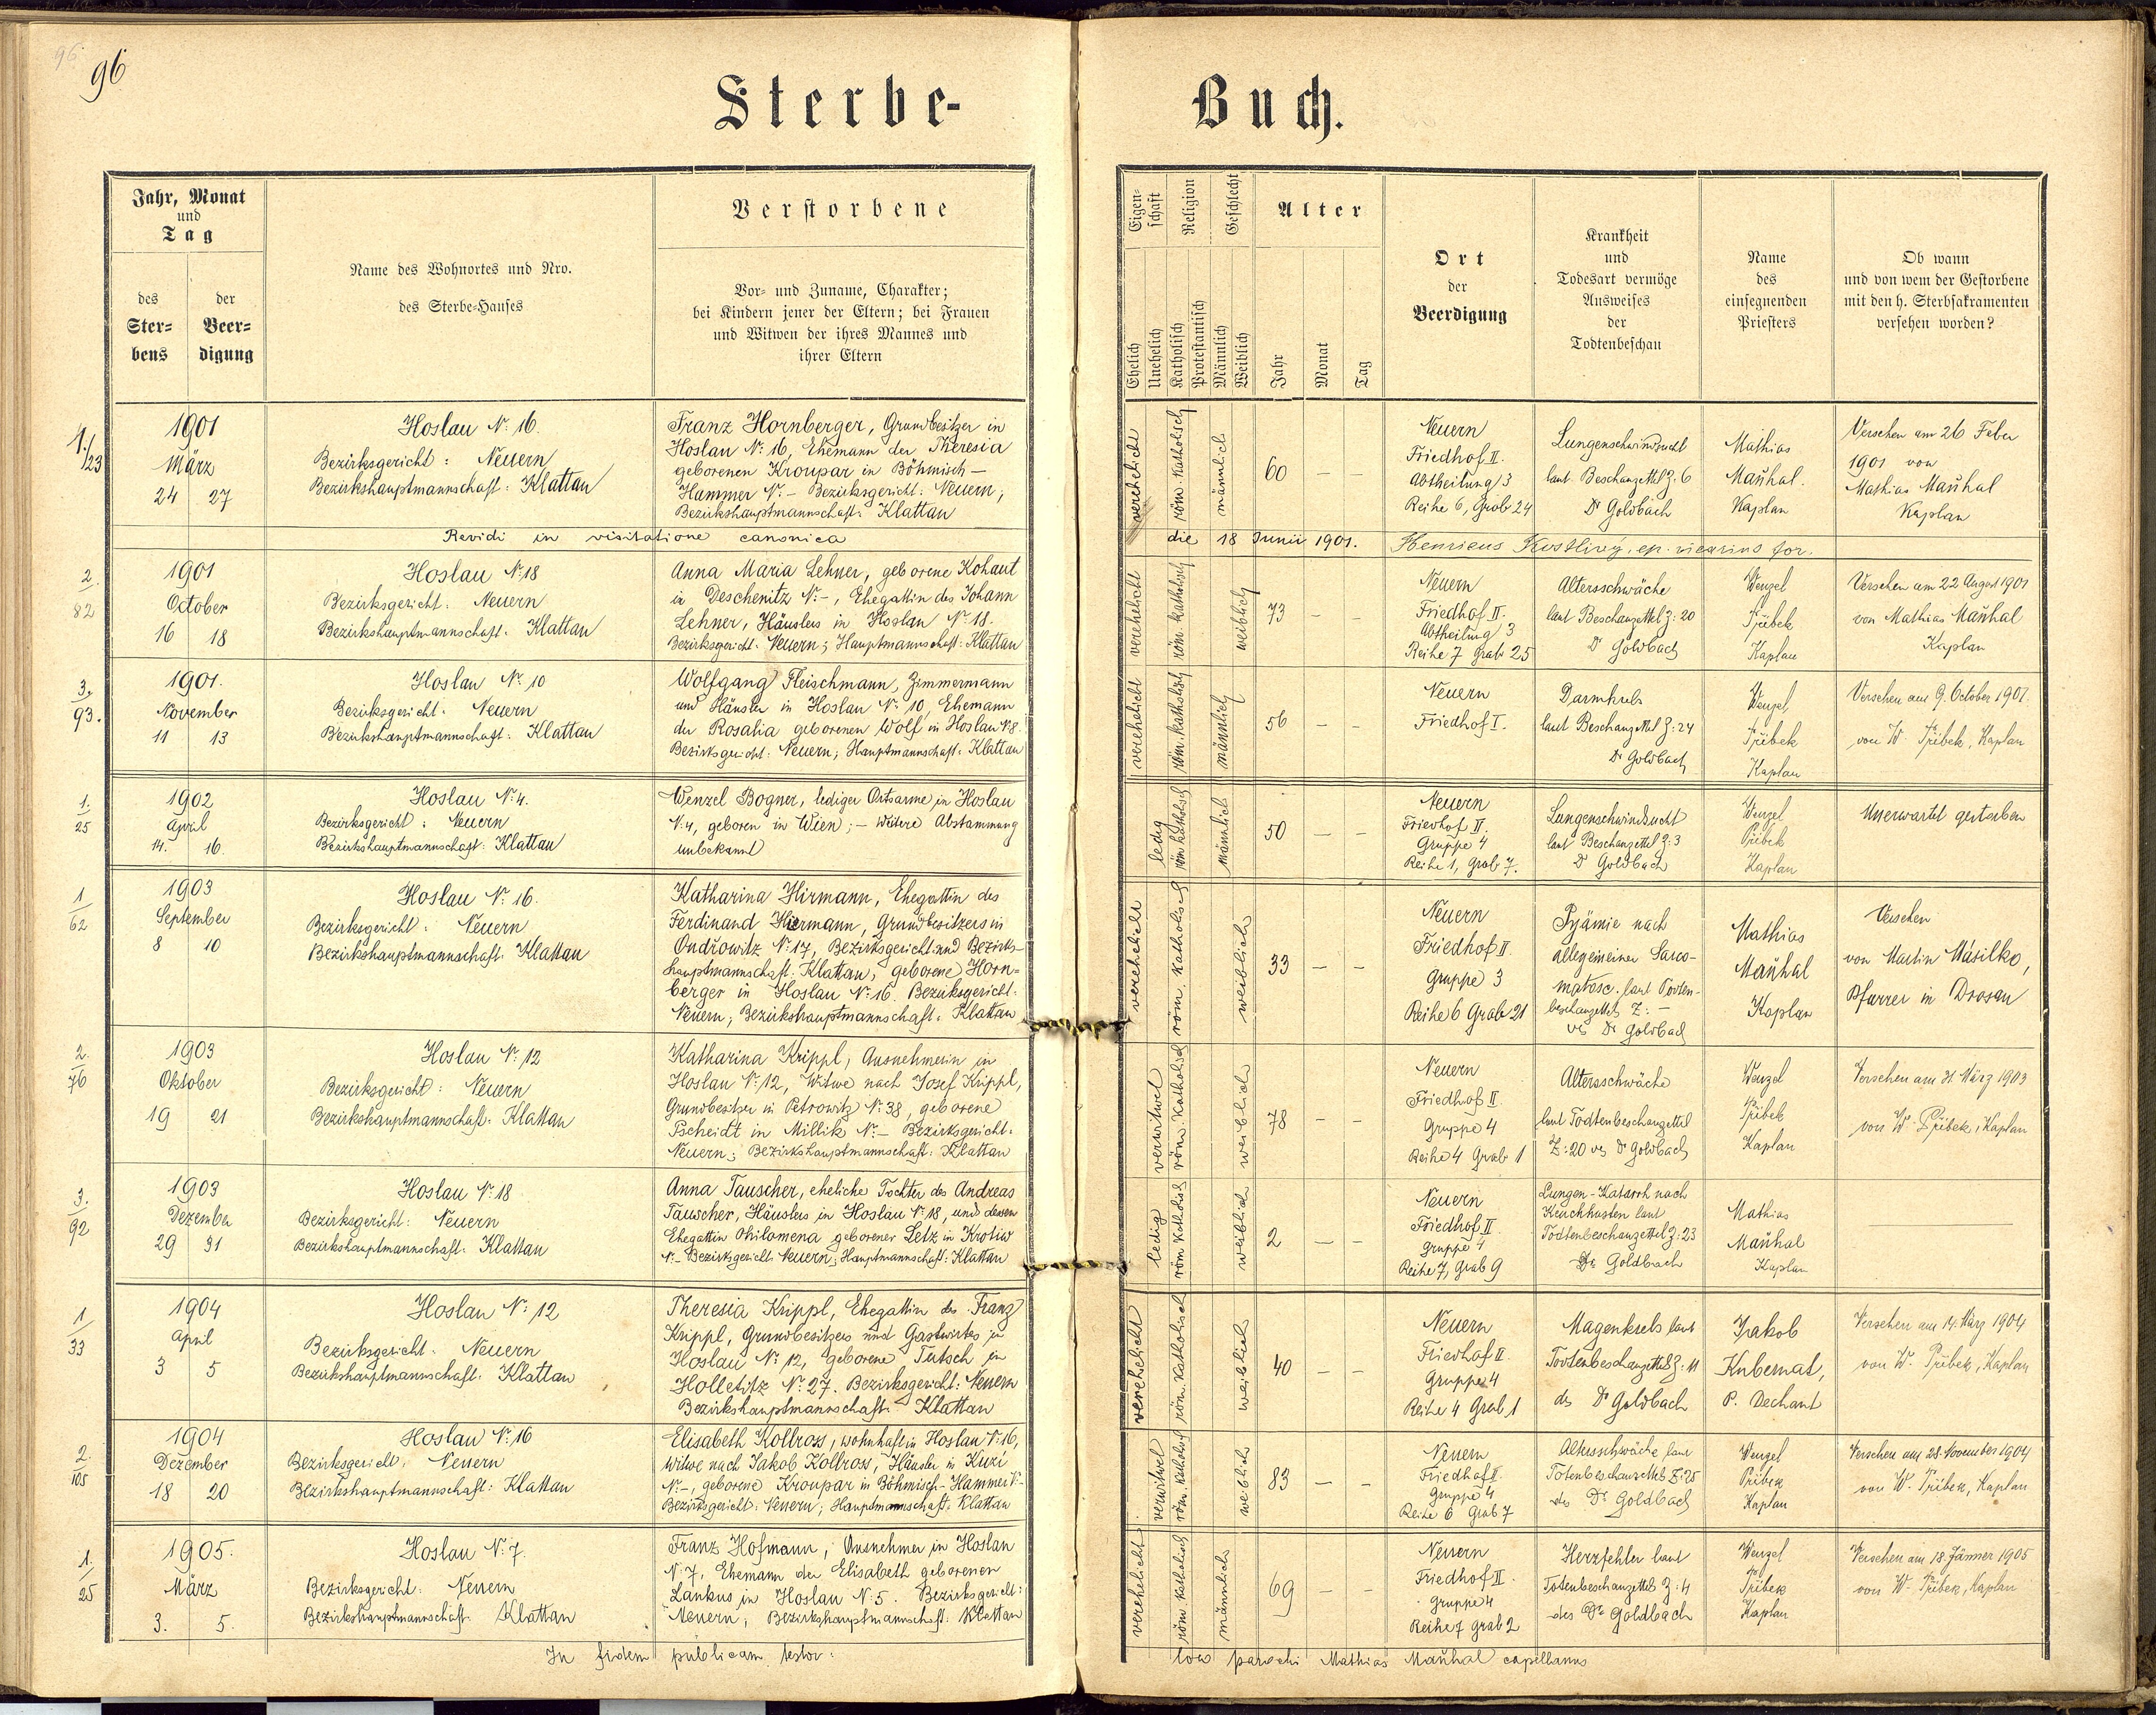 96
96
Sterbe-
Buch.
Jahr, Monat
und
Tag
des
Ster-
bens
der
Beer-
digung
Name des Wohnortes und Nro.
des Sterbe-Hauses
Verstorbene
Vor- und Zuname, Charakter;
bei Kindern jener der Eltern; bei Frauen
und Witwen der ihres Mannes und
ihrer Eltern
Eigen-
schaft
Religion
Geschlecht
Alter
Ehelich
Unehelich
Katholisch
Protestantisch
Männlich
Weiblich
Jahr
Monat
Tag
Ort
der
Beerdigung
Krankheit
und
Todesart vermöge
Ausweises
der
Todtenbeschau
Name
des
einsegnenden
Priesters
Ob wann
und von wem der Gestorbene
mit den h. Sterbsakramenten
versehen worden?
1./23
1901
März
24 27
Hoslau N: 16.
Bezirksgericht: Neuern
Bezirkshauptmannschaft: Klattau
Franz Hornberger, Grundbesitzer in
Hoslau N: 16, Ehemann der Theresia
geborenen Kroupar in Böhmisch-
Hammer N: - Bezirksgericht: Neuern;
Bezirkshauptmannschaft: Klattau
verehelicht
röm. katholisch
männlich
60 - -
Neuern
Friedhof II.
Abtheilung 3
Reihe 6, Grab 24
Lungenschwindsucht
laut Beschauzettel Z. 6
Dr Goldbach
Mathias
Maňhal.
Kaplan
Versehen am 26 Feber
1901 von
Mathias Maňhal
Kaplan
Revidi in visitatione canonica
die 18 Junii 1901. Henricus Kostlivý, ep. vicarius for.
2./82
1901
October
16 18
Hoslau N: 18
Bezirksgericht: Neuern
Bezirkshauptmannschaft: Klattau
Anna Maria Lehner, geborene Kohaut
in Deschenitz N: -, Ehegattin des Johann
Lehner, Häuslers in Hoslau N: 18.
Bezirksgericht: Neuern; Hauptmannschaft: Klattau
verehelicht
röm. katholisch
weiblich
73 - -
Neuern
Friedhof II.
Abtheilung 3
Reihe 7 Grab 25
Altersschwäche
laut Beschauzettel Z: 20
Dr Goldbach
Wenzel
Přibek
Kaplan
Versehen am 22 August 1901
von Mathias Maňhal
Kaplan
3./93.
1901.
November
11 13
Hoslau N: 10
Bezirksgericht: Neuern
Bezirkshauptmannschaft: Klattau
Wolfgang Fleischmann, Zimmermann
und Häusler in Hoslau N: 10, Ehemann
der Rosalia geborenen Wolf in Hoslau N: 8.
Bezirksgericht: Neuern; Hauptmannschaft: Klattau
verehelicht
röm. katholisch
männlich
56 - -
Neuern
Friedhof I.
Darmkrebs
laut Beschauzettel Z: 24
Dr Goldbach
Wenzel
Přibek
Kaplan
Versehen am 9. October 1901
von W. Přibek, Kaplan
1./25
1902
April
14. 16.
Hoslau N: 4.
Bezirksgericht: Neuern
Bezirkshauptmannschaft: Klattau
Wenzel Bogner, lediger Ortsarme in Hoslau
N: 4, geboren in Wien; - weitere Abstammung
unbekannt
ledig
röm katholisch
männlich
50 - -
Neuern
Friedhof II.
Gruppe 4
Reihe 1, Grab 7.
Lungenschwindsucht
laut Beschauzettel Z: 3
Dr Goldbach
Wenzel
Přibek
Kaplan
Unerwartet gestorben
1/62
1903
September
8 10
Hoslau N: 16.
Bezirksgericht: Neuern
Bezirkshauptmannschaft: Klattau
Katharina Hirmann, Ehegattin des
Ferdinand Hirmann, Grundbesitzers in
Ondřowitz N: 17, Bezirksgericht und Bezirks-
hauptmannschaft: Klattau, geborene Horn-
berger in Hoslau N: 16. Bezirksgericht:
Neuern; Bezirkshauptmannschaft: Klattau
verehelicht
röm. katholisch
weiblich
33 - -
Neuern
Friedhof II
Gruppe 3
Reihe 6 Grab 21
Pyämie nach
allegemeiner Sarco-
matose. laut Todten-
beschauzettels Z: -
des Dr Goldbach
Mathias
Maňhal
Kaplan
Versehen
von Martin Másilko,
Pfarrer in Drosau
2./76
1903
Oktober
19 21
Hoslau N: 12
Bezirksgericht: Neuern
Bezirkshauptmannschaft: Klattau
Katharina Krippl, Ausnehmerin in
Hoslau N: 12, Witwe nach Josef Krippl,
Grundbesitzer in Petrowitz N: 38, geborene
Pscheidt in Millik N: - Bezirksgericht:
Neuern; Bezirkshauptmannschaft: Klattau
verwitwet
röm. katholisch
weiblich
78 - -
Neuern
Friedhof II.
Gruppe 4
Reihe 4 Grab 1
Altersschwäche
laut Todtenbeschauzettel
Z: 20 des Dr Goldbach
Wenzel
Přibek
Kaplan
Versehen am 31. März 1903
von W. Přibek, Kaplan
3./92
1903
Dezember
29 31
Hoslau N: 18
Bezirksgericht: Neuern
Bezirkshauptmannschaft: Klattau
Anna Tauscher, eheliche Tochter des Andreas
Tauscher, Häuslers in Hoslau N: 18, und dessen
Ehegattin Philomena geborener Letz in Krotiw
N: - Bezirksgericht Neuern; Hauptmannschaft: Klattau
ledig
röm katholisch
weiblich
2 - -
Neuern
Friedhof II
Gruppe 4
Reihe 7, Grab 9
Lungen-Katarrh nach
Keuchhusten laut
Todtenbeschauzettel Z: 23
Dr Goldbach
Mathias
Maňhal
Kaplan
1/33
1904
April
3 5
Hoslau N: 12
Bezirksgericht: Neuern
Bezirkshauptmannschaft: Klattau
Theresia Krippl, Ehegattin des Franz
Krippl, Grundbesitzers und Gastwirtes in
Hoslau N: 12, geborene Tutsch in
Holletitz N: 27. Bezirksgericht: Neuern
Bezirkshauptmannschaft: Klattau
verehelicht
röm. katholisch
weiblich
40 - -
Neuern
Friedhof II.
Gruppe 4
Reihe 4 Grab 1
Magenkrebs laut
Todtenbeschauzettels Z: 11
des Dr Goldbach
Jakob
Kubernat,
P. Dechant
Versehen am 14. März 1904
von W. Přibek, Kaplan
2./105
1904
Dezember
18 20
Hoslau N: 16
Bezirksgericht: Neuern
Bezirkshauptmannschaft: Klattau
Elisabeth Kollross, wohnhaft in Hoslau N: 16,
Witwe nach Jakob Kollross, Häusler in Kuži
N: -, geborene Kroupar in Böhmisch-Hammer N: -
Bezirksgericht: Neuern; Hauptmannschaft: Klattau
verwitwet
röm. katholisch
weiblich
83 - -
Neuern
Friedhof II.
Gruppe 4
Reihe 6 Grab 7
Altersschwäche laut
Totenbeschauzettels Z: 25
des Dr Goldbach
Wenzel
Přibek
Kaplan
Versehen am 28. November 1904
von W. Přibek, Kaplan
1./25
1905.
März
3. 5.
Hoslau N: 7.
Bezirksgericht: Neuern
Bezirkshauptmannschaft: Klattau
Franz Hofmann, Ausnehmer in Hoslau
N: 7, Ehemann der Elisabeth geborenen
Lankus in Hoslau N: 5. Bezirksgericht:
Neuern; Bezirkshauptmannschaft: Klattau
verehelicht
röm katholisch
männlich
69 - -
Neuern
Friedhof II.
Gruppe 4
Reihe 7 Grab 2
Herzfehler laut
Totenbeschauzettels Z: 4
des Dr Goldbach
Wenzel
Přibek
Kaplan
Versehen am 18. Jänner 1905
von W. Přibek, Kaplan
In fidem publicam testor:
loco parochi Mathias Maňhal capellanus